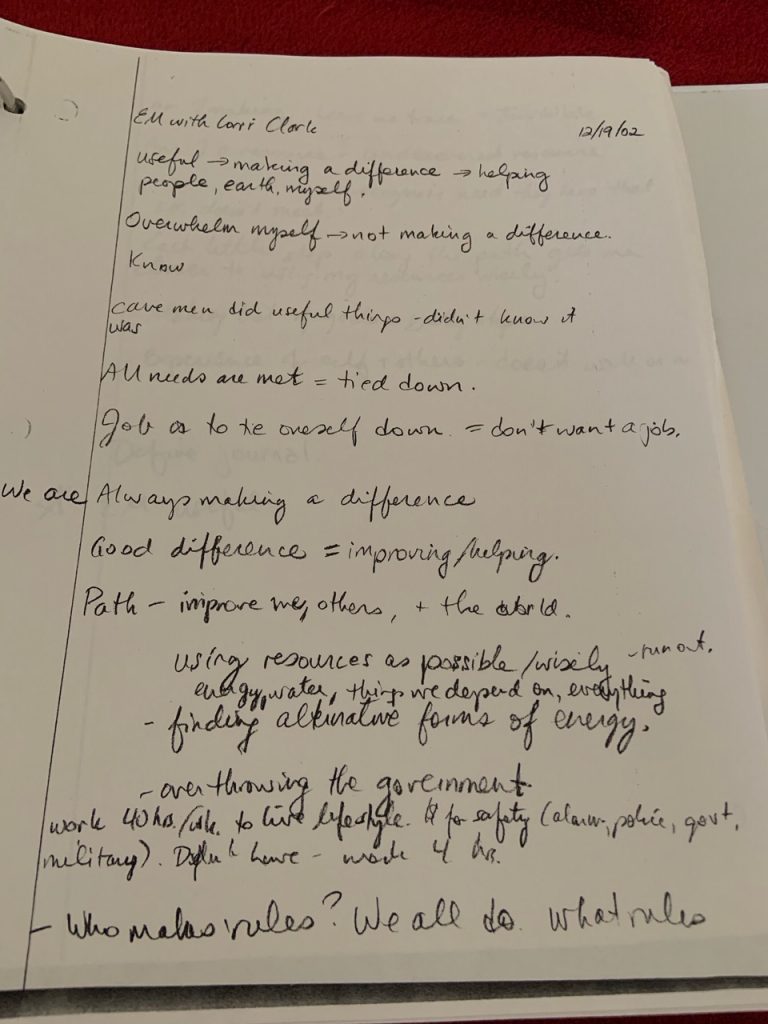 EM with Lorri Clark 12/19/02
useful → making a difference → helping
people, earth, myself.
Overwhelm myself → not making a difference.
Know
cave men did useful things - didn't know it
was
All needs are met = tied down.
Job is to tie oneself down. = don't want a job.
We are Always making a difference
Good difference = improving/helping.
Path - improve me, others, + the world.
using resources as possible/wisely - run out.
energy, water, things we depend on, everything
- finding alternative forms of energy.
- overthrowing the government.
work 40 hrs./wk. to live lifestyle. $ for safety (alarm, police, govt,
military). Didn't have - work 4 hrs.
- Who makes rules? We all do. what rules